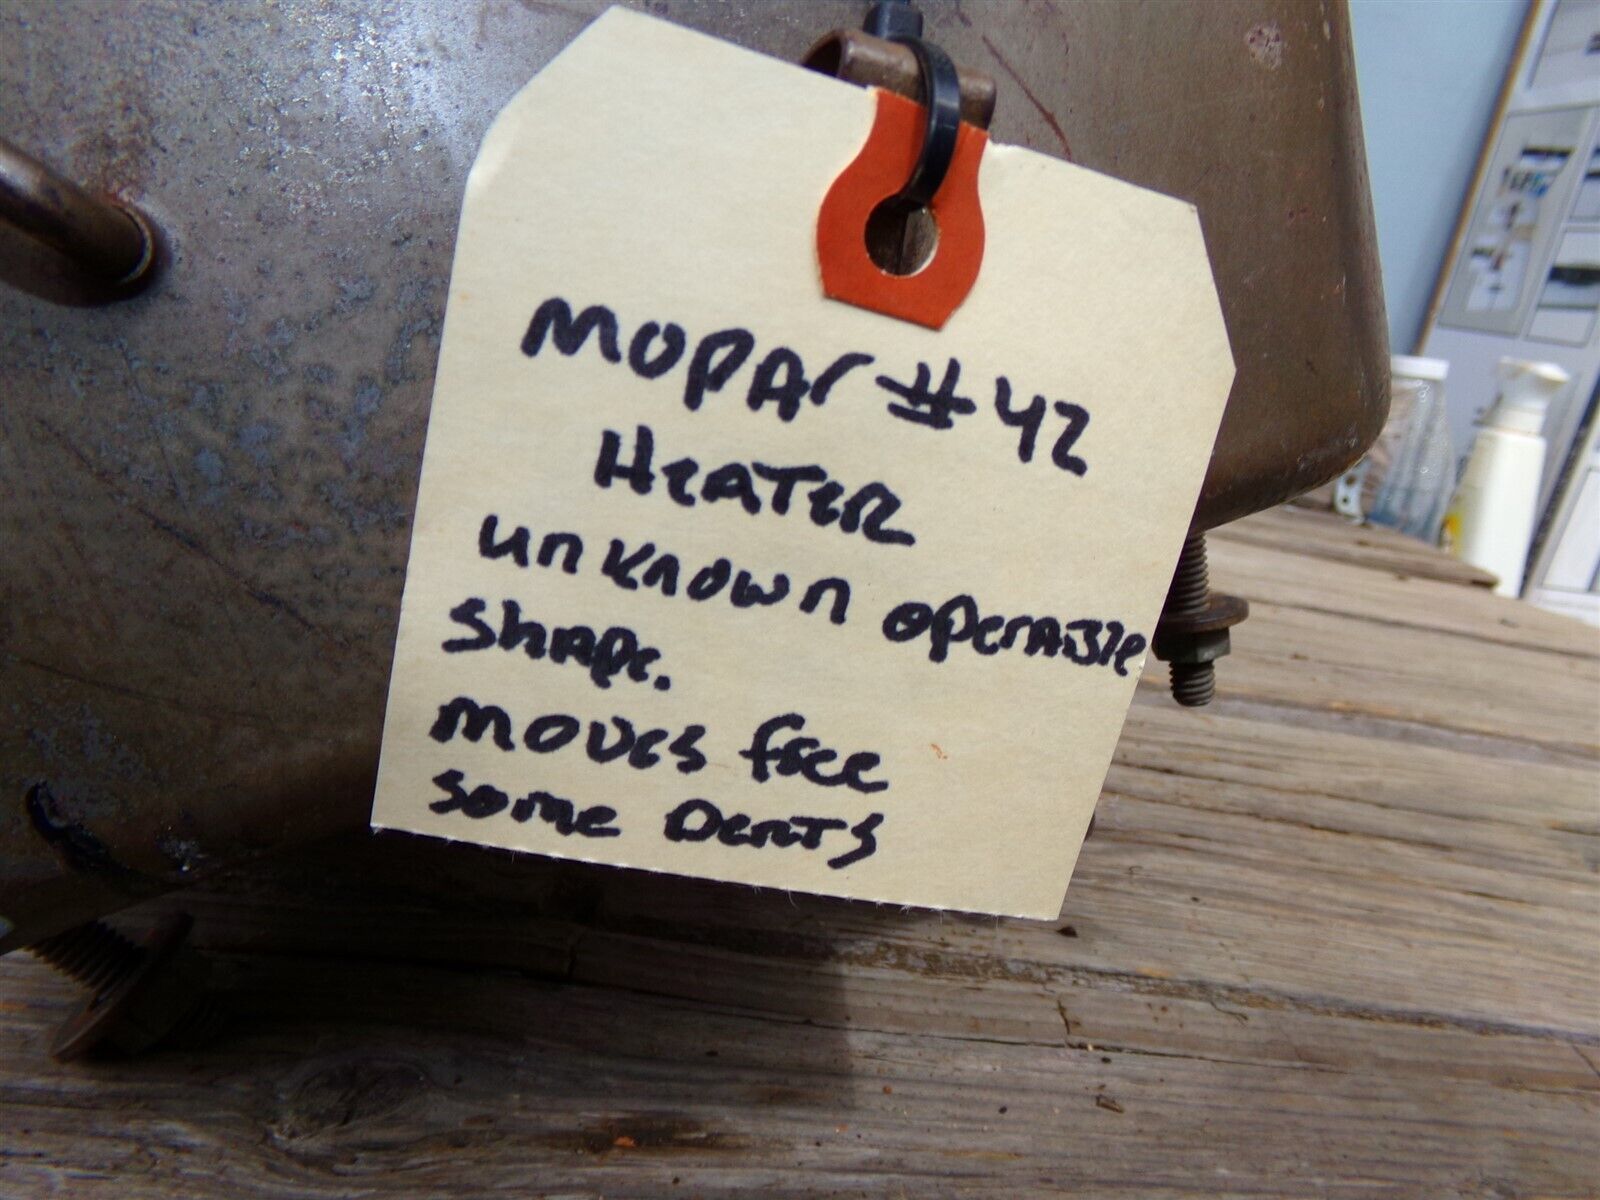 Mopar #42
Heater
unknown operable
shape.
moves free
some Dents